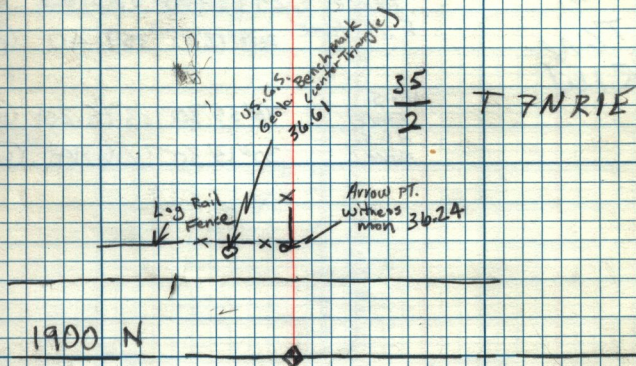 U.S.G.S.
Geolo. Benchmark
(center Triangle)
36.61
35
2
T 7N R1E
Log Rail
Fence
Arrow pt.
witness
mon 36.24
1900 N